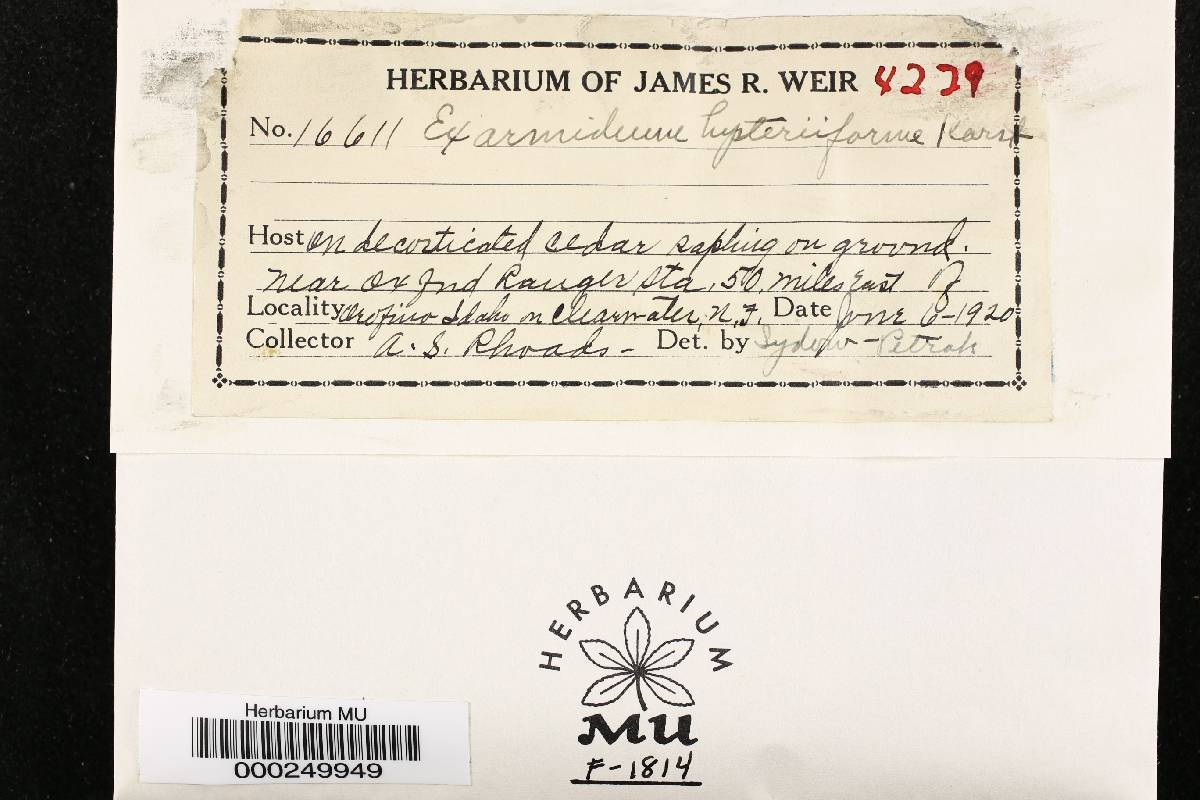 HERBARIUM OF JAMES R. WEIR 4279
No. 16611 Exarmidium hysteriiforme Karst
Host On decorticated cedar sapling on ground.
near Ox Ind Ranger Sta, 50, miles East of
Locality Orofino Idaho on Clearwater, N.F. Date June 6-1920
Collector A. S. Rhoads - Det. by Sydow - Petrak
HERBARIUM
MU
F-1814
Herbarium MU
000249949